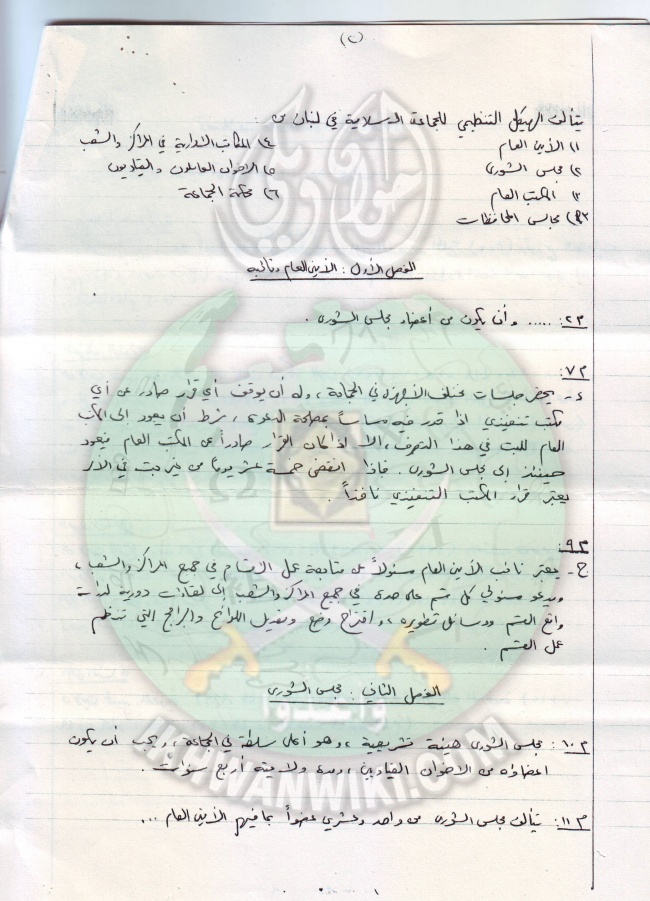 (٢)
يتألف الهيكل التنظيمي للجماعة الاسلامية في لبنان من :
١) الأمين العام
٢) مجلس الشورى
٣) المكتب العام
٣م) مجالس المحافظات
٤) المكاتب الادارية في المراكز والشعب
٥) الاخوان العاملون والقياديون
٦) محكمة الجماعة
الفصل الأول : الأمين العام ونائبه
م٢: ..... وأن يكون من أعضاء مجلس الشورى .
م٧:
٤- يحضر جلسات مختلف الأجهزة في الجماعة ، وله أن يوقف أي قرار صادر عن أي
مكتب تنفيذي اذا قدر فيه مساساً بمصلحة الدعوة ، شرط أن يعود الى المكتب
العام للبت في هذا التصرف ، الا اذا كان القرار صادراً عن المكتب العام فيعود
حينئذ إلى مجلس الشورى . فاذا انقضى خمسة عشر يوماً من غير بت في الأمر
يعتبر قرار المكتب التنفيذي نافذاً .
م٩:
ج- يعتبر نائب الأمين العام مسئولاً عن متابعة عمل الاقسام في جميع المراكز والشعب ،
ويدعو مسئولي كل قسم على حدة في جميع المراكز والشعب إلى لقاءات دورية لدراسة
واقع القسم ووسائل تطويره ، واقتراح وضع وتعديل اللوائح والبرامج التي تنظم
عمل القسم .
الفصل الثاني : مجلس الشورى
م١٠: مجلس الشورى هيئة تشريعية ، وهو أعلى سلطة في الجماعة ، ويجب أن يكون
اعضاؤه من الاخوان القياديين ، ومدة ولايته أربع سنوات .
م١١: يتألف مجلس الشورى من واحد وعشرين عضواً بما فيهم الأمين العام ...
إخوان ويكي
وأعدوا
IKHWANWIKI.COM